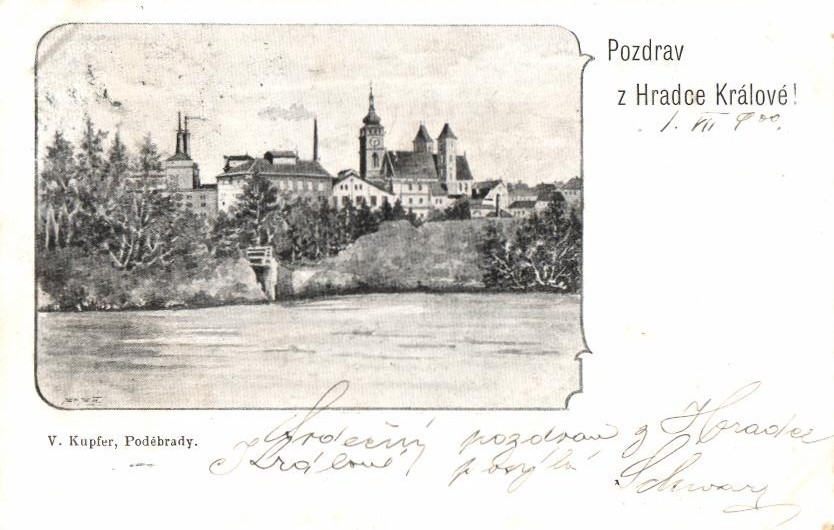 Pozdrav
z Hradce Králové!
1. VII 900.
V. Kupfer, Poděbrady.
Srdečný pozdrav z Hradce
Králové, posýlá Schwarz